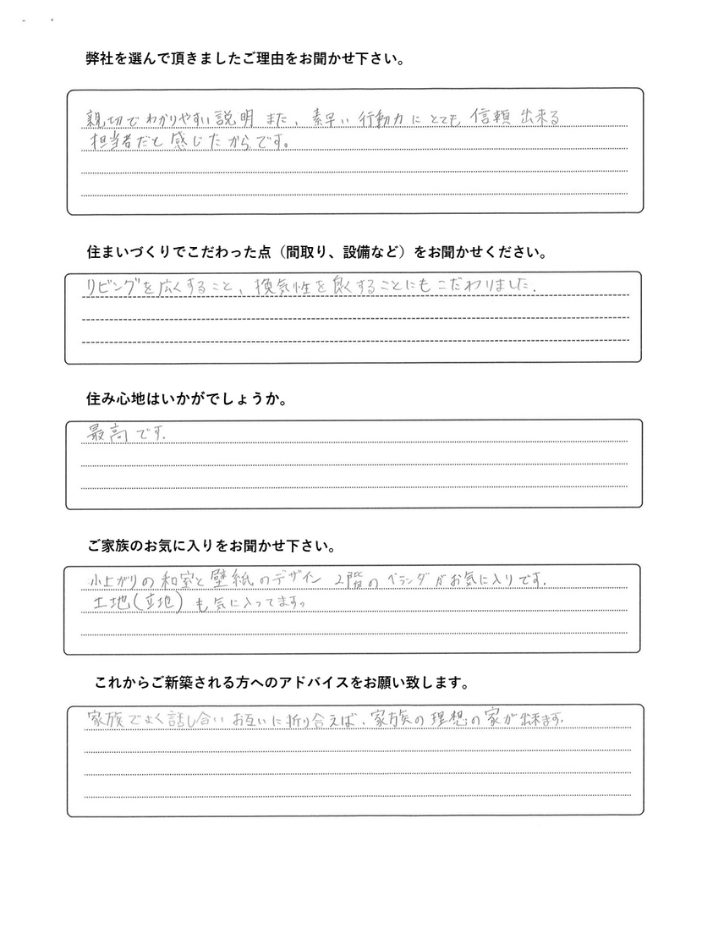 弊社を選んで頂きましたご理由をお聞かせ下さい。
親切でわかりやすい説明 また、素早い行動力にとても信頼出来る
担当者だと感じたからです。
住まいづくりでこだわった点（間取り、設備など）をお聞かせください。
リビングを広くすること、換気性を良くすることにもこだわりました.
住み心地はいかがでしょうか。
最高です.
ご家族のお気に入りをお聞かせ下さい。
小上がりの和室と壁紙のデザイン 2階のベランダがお気に入りです.
土地(立地)も気に入ってます。
これからご新築される方へのアドバイスをお願い致します。
家族でよく話し合いお互いに折り合えば、家族の理想の家が出来ます.